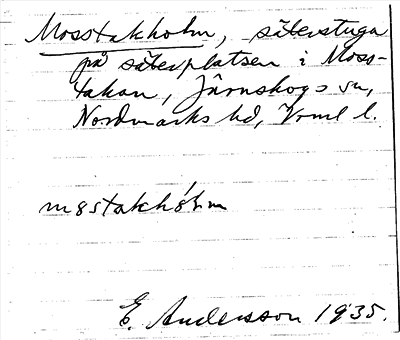 Mosstakholm, säterstuga
på säterplatsen i Moss-
takan, Järnskogs sn,
Nordmarks hd, Vrml l.
møstakhó̷lm
E. Andersson 1935.